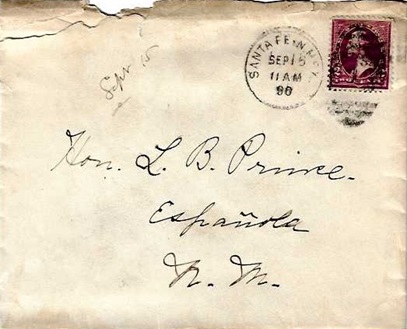 Sept 15
SANTA FE, N. MEX.
SEP 15
11 AM
96
Hon. L. B. Prince.
Española
N. M.